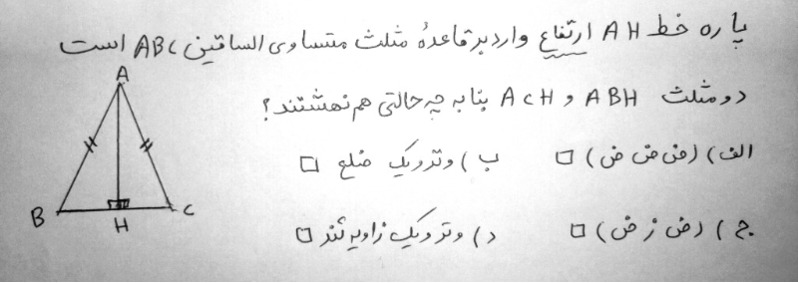 پاره خط AH ارتفاع وارد بر قاعدهٔ مثلث متساوی الساقین ABC است
دو مثلث ABH و ACH بنا به چه حالتی هم نهشتند؟
الف) (ض ض ض) □ ب) وتر و یک ضلع □
ج) (ض ز ض) □ د) وتر و یک زاویه تند □
A
B H C